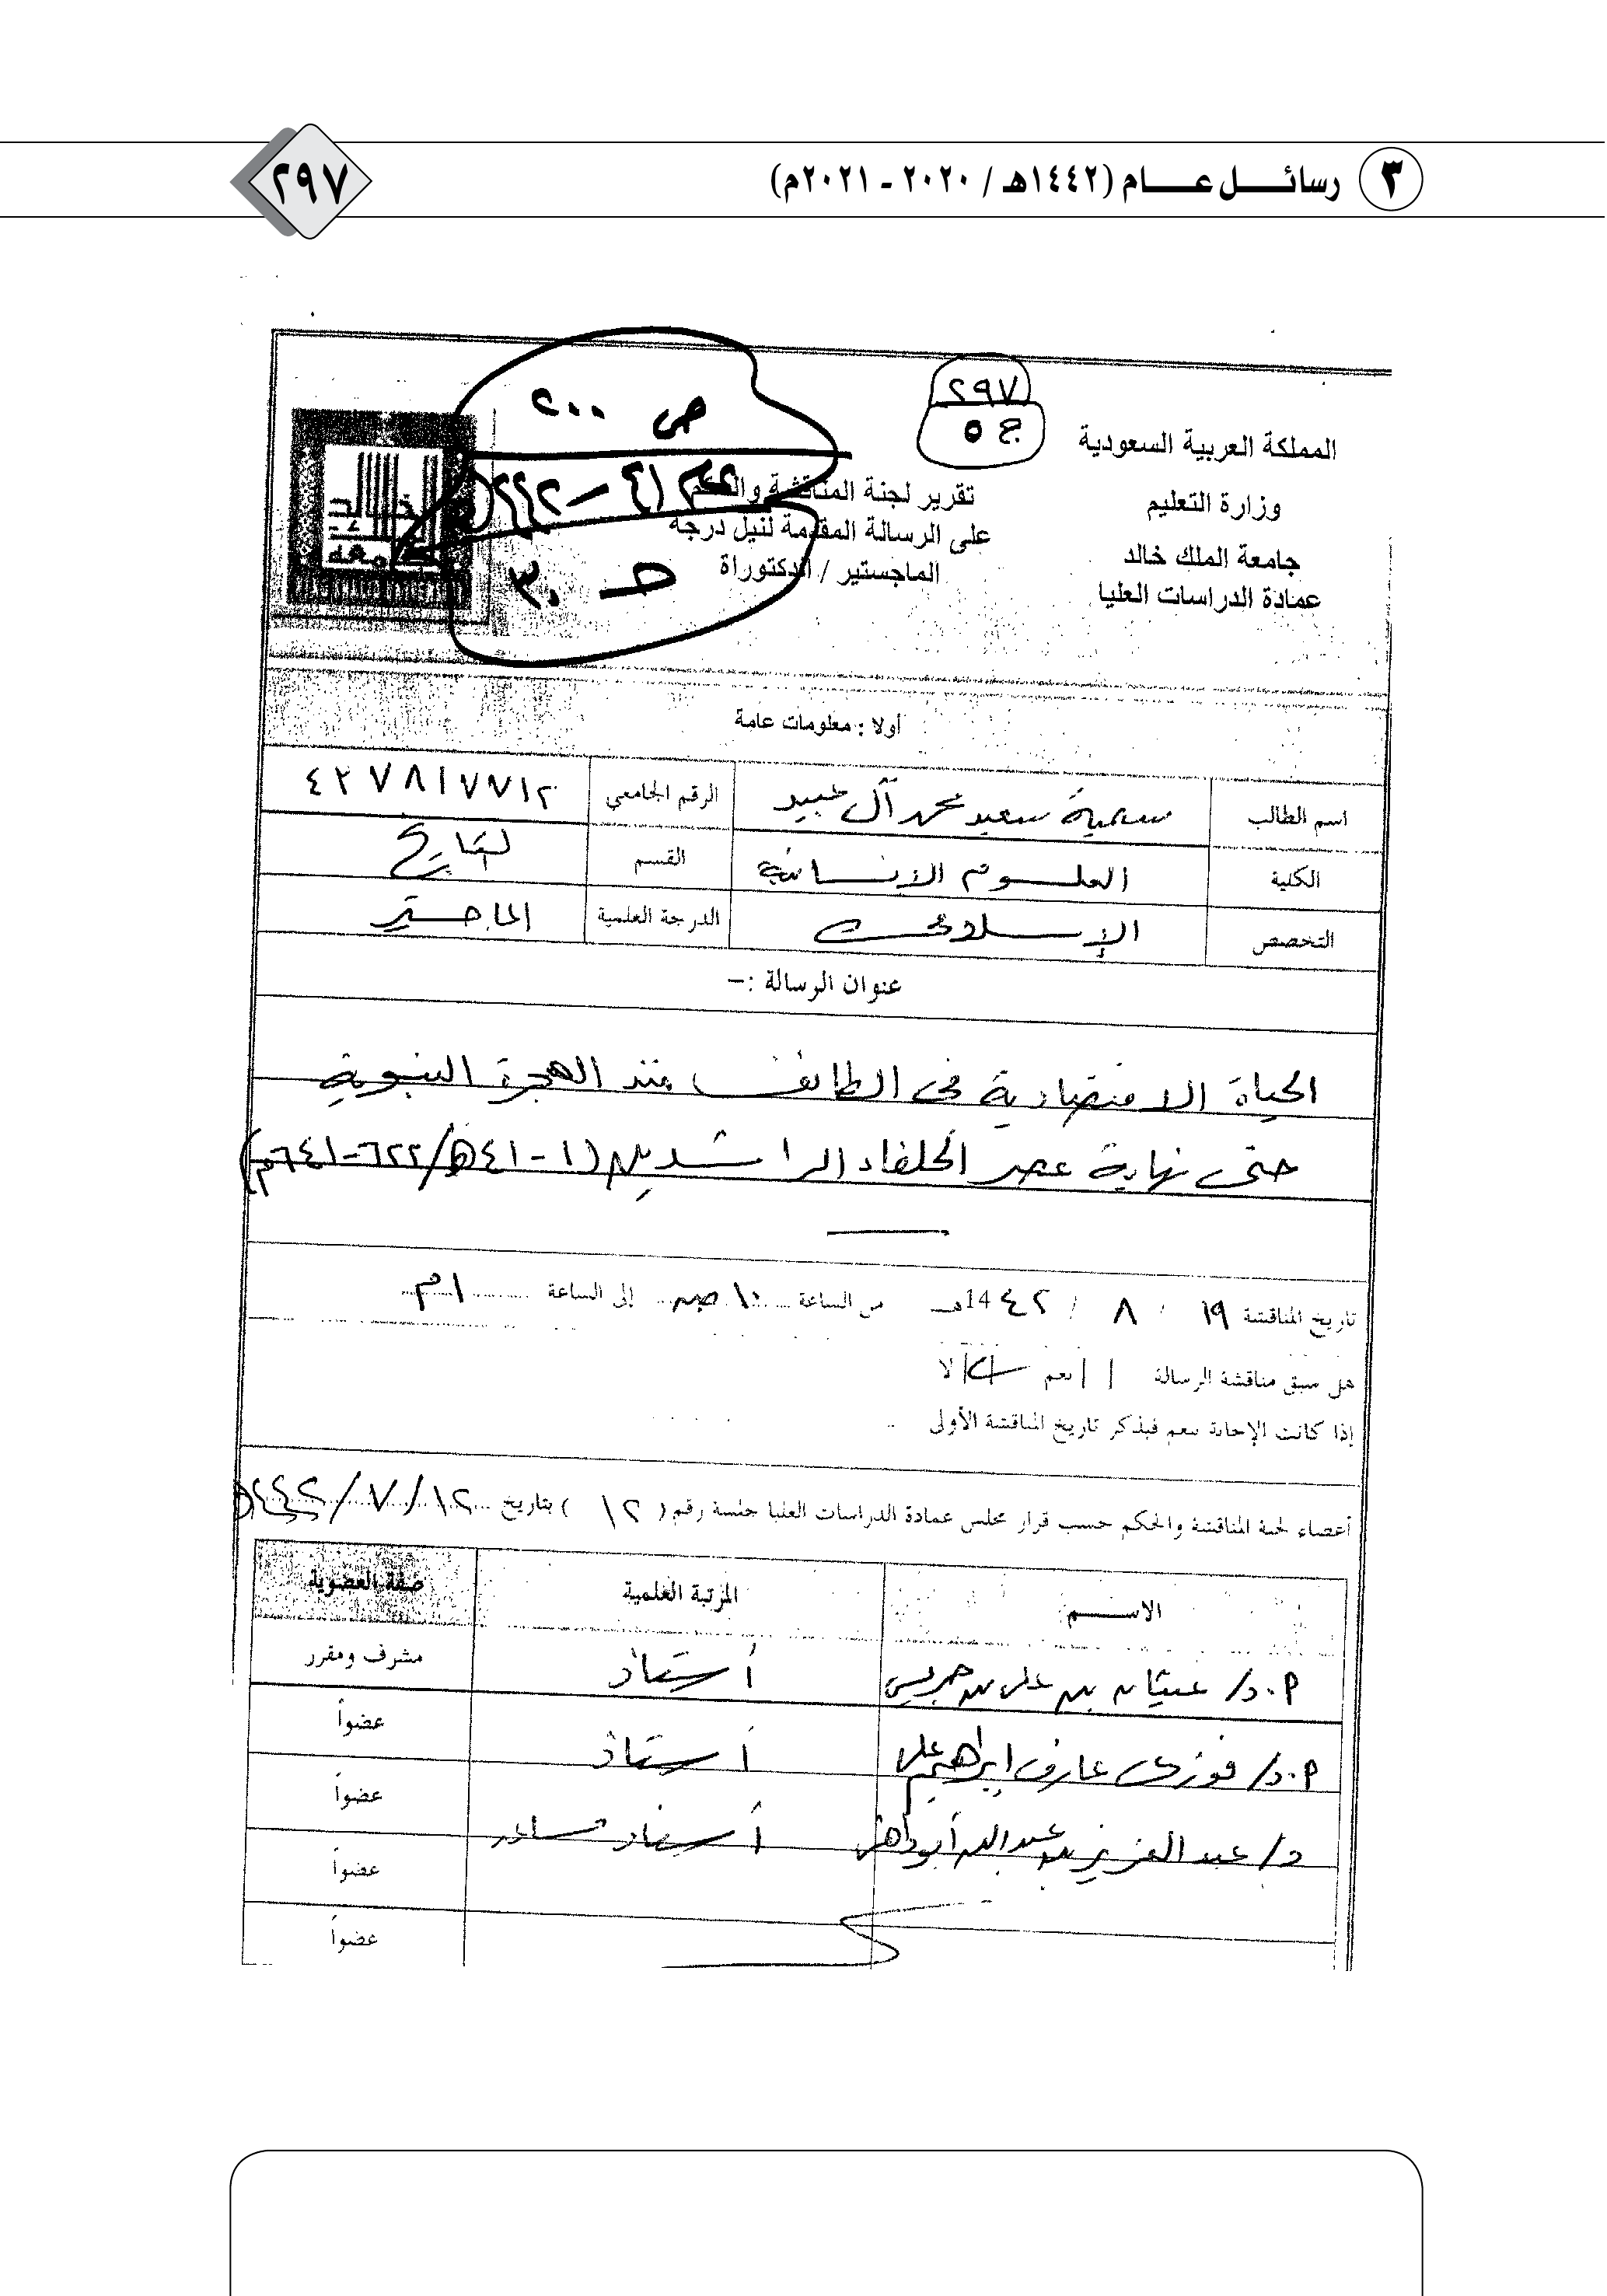 ٣ رسائــــل عــــــام (١٤٤٢هـ / ٢٠٢٠ ـ ٢٠٢١م)
٢٩٧
٢٩٧
ج ٥
ص ٢٠٠
ح ٣٠
المملكة العربية السعودية
وزارة التعليم
جامعة الملك خالد
عمادة الدراسات العليا
تقرير لجنة المناقشة والحكم
على الرسالة المقدمة لنيل درجة
الماجستير / الدكتوراة
أولا : معلومات عامة
اسم الطالب سمية سعيد محمد آل عبيد الرقم الجامعي ٤٢٧٨١٧٧١٢
الكلية العلوم الانسانية القسم التاريخ
التخصص الإسلامي الدرجة العلمية الماجستير
عنوان الرسالة :–
الحياة الاقتصادية في الطائف منذ الهجرة النبوية
حتى نهاية عصر الخلفاء الراشدين (١-٤١هـ/٦٢٢-٦٤١م)
تاريخ المناقشة ١٩ / ٨ / 14٤٢هـ من الساعة ١٠ ص إلى الساعة ١ م
هل سبق مناقشة الرسالة | | نعم | | لا
إذا كانت الإجابة بنعم فيذكر تاريخ المناقشة الأولى
أعضاء لجنة المناقشة والحكم حسب قرار مجلس عمادة الدراسات العليا جلسة رقم ( ١٢ ) بتاريخ ١٢/٧/١٤٤٢هـ
الاســـــم: المرتبة العلمية صفة العضوية
أ.د/ غيثان بن علي بن جريس أستاذ مشرف ومقرر
أ.د/ فوزي عارف إبراهيم علي أستاذ عضواً
د/ عبد العزيز بن عبدالله أبوداهش أستاذ مساعد عضواً
عضواً
عضواً